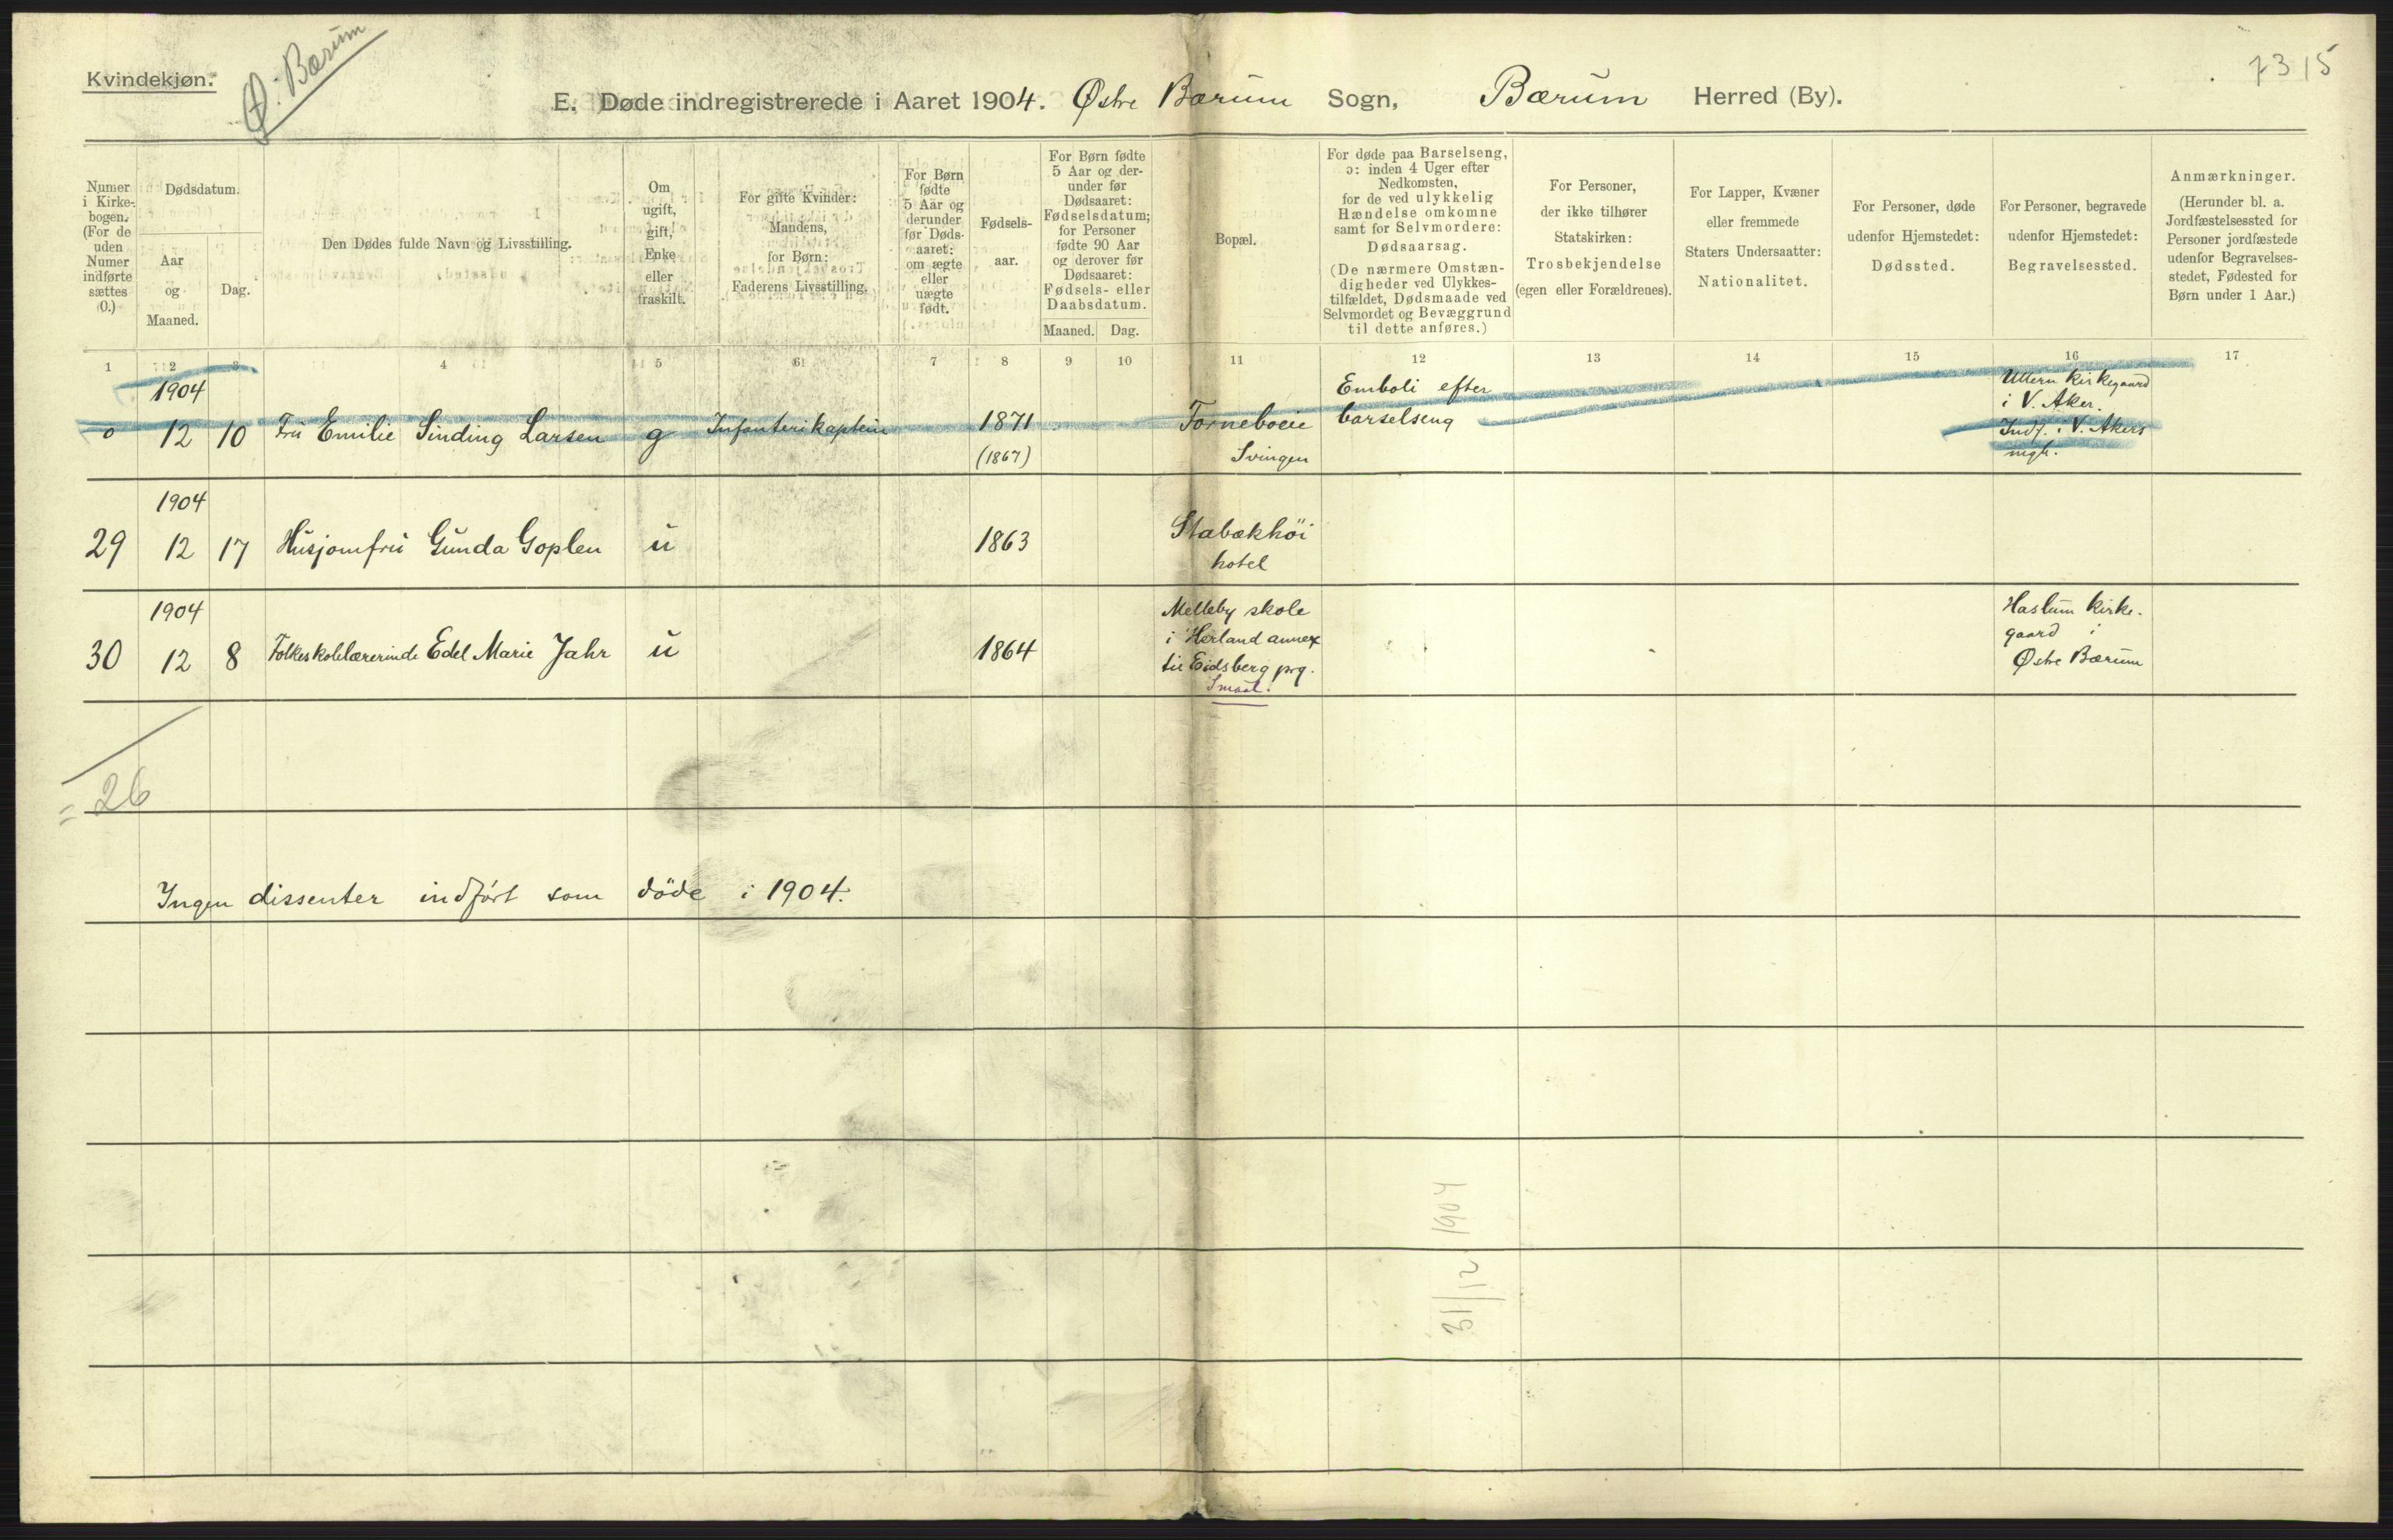 Kvindekjøn.
Ø. Bærum
7315
E. Døde indregistrerede i Aaret 1904. Østre Bærum Sogn, Bærum Herred (By).
Numer i Kirkebogen. (For de uden Numer indførte sættes 0.)
Dødsdatum.
Aar og Maaned.
Dag.
Den Dødes fulde Navn og Livsstilling.
Om ugift, gift, Enke eller fraskilt.
For gifte Kvinder: Mandens, for Børn: Faderens Livsstilling.
For Børn fødte 5 Aar og derunder før Dødsaaret: om ægte eller uægte født.
Fødselsaar.
For Børn fødte 5 Aar og derunder før Dødsaaret: Fødselsdatum; for Personer fødte 90 Aar og derover før Dødsaaret: Fødsels- eller Daabsdatum.
Maaned. Dag.
Bopæl.
For døde paa Barselseng, ɔ: inden 4 Uger efter Nedkomsten, for de ved ulykkelig Hændelse omkomne samt for Selvmordere: Dødsaarsag.
(De nærmere Omstændigheder ved Ulykkestilfældet, Dødsmaade ved Selvmordet og Bevæggrund til dette anføres.)
For Personer, der ikke tilhører Statskirken: Trosbekjendelse (egen eller Forældrenes).
For Lapper, Kvæner eller fremmede Staters Undersaatter: Nationalitet.
For Personer, døde udenfor Hjemstedet: Dødssted.
For Personer, begravede udenfor Hjemstedet: Begravelsessted.
Anmærkninger.
(Herunder bl. a. Jordfæstelsessted for Personer jordfæstede udenfor Begravelsesstedet, Fødested for Børn under 1 Aar.)
1 2 3 4 5 6 7 8 9 10 11 12 13 14 15 16 17
1904 Emboli efter Ullern kirkegaard
i V. Aker.
0 12 10 Fru Emilie Sinding Larsen g Infanterikaptein 1871 Forneboeie barselseng Indf. i V. Akers
(1867) Svingen mgh.
1904
29 12 17 Husjomfru Gunda Goplen u 1863 Stabækhöi
hotel
1904 Melleby skole Haslum kirke-
i Herland annex gaard i
30 12 8 Folkeskolelærerinde Edel Marie Jahr u 1864 til Eidsberg prg. Østre Bærum
Smaal.
= 26
Ingen dissenter indfört som döde i 1904.
31/12 1904